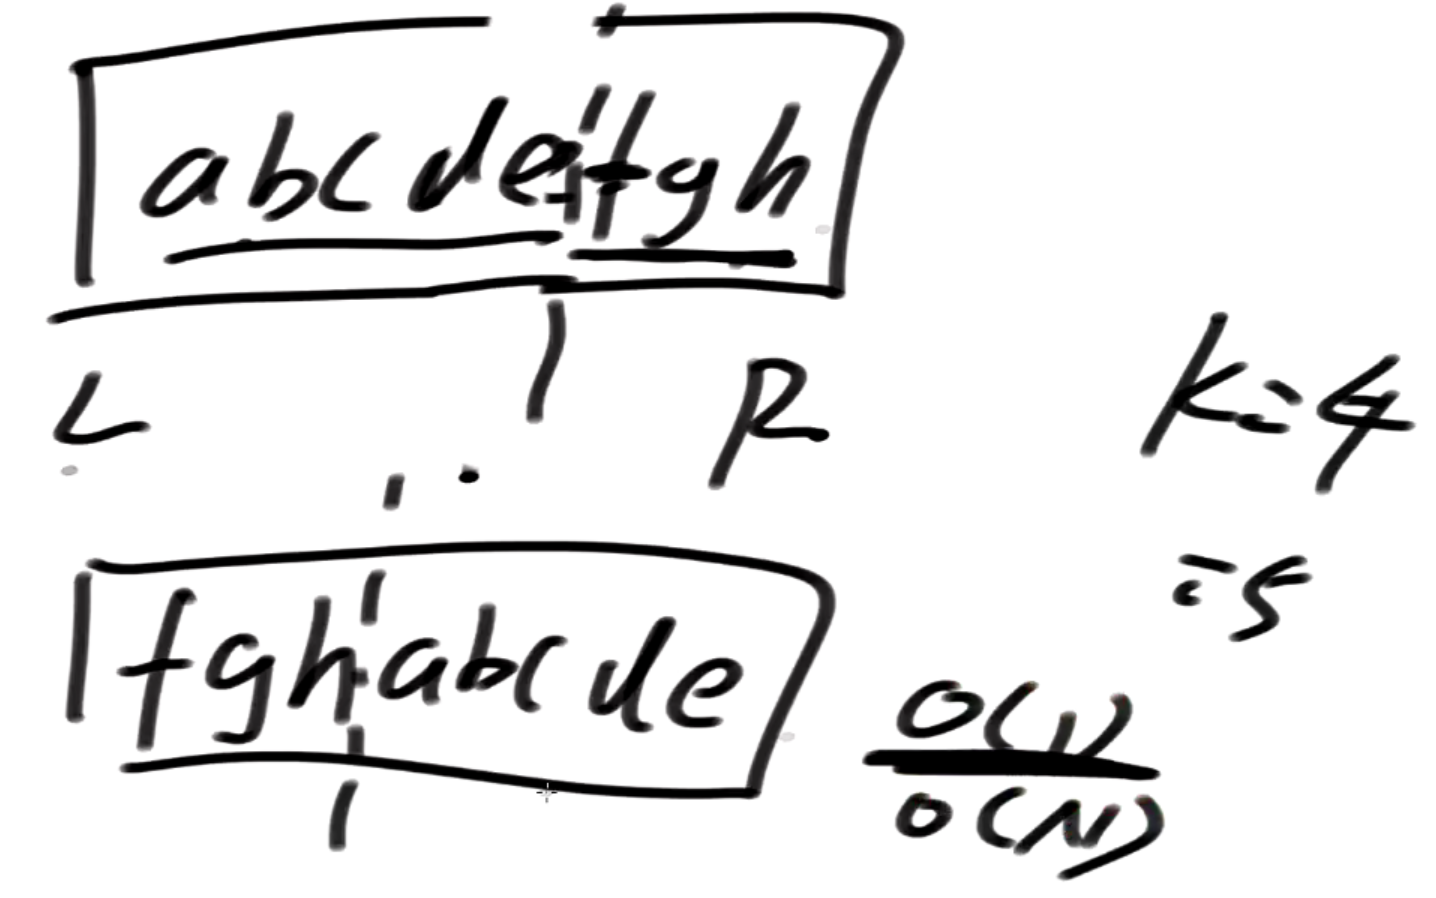 abcdefgh
L R
k=4
=5
fghabcde
O(1)
O(N)